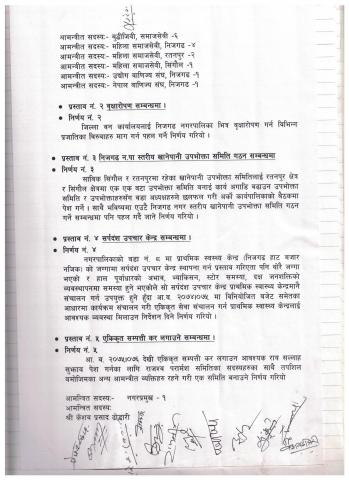 आमन्त्रीत सदस्य:- बुद्धीजिवी, समाजसेवी -६
आमन्त्रीत सदस्य:- महिला समाजसेवी, निजगढ -४
आमन्त्रीत सदस्य:- महिला समाजसेवी, रतनपुर -२
आमन्त्रीत सदस्य:- महिला समाजसेवी, सिंगौल -१
आमन्त्रीत सदस्य:- उद्योग बाणिज्य संघ, निजगढ -१
आमन्त्रीत सदस्य:- नेपाल बाणिज्य संघ, निजगढ -१
• प्रस्ताव नं. २ वृक्षारोपण सम्बन्धमा ।
• निर्णय नं. २
जिल्ला वन कार्यालयलाई निजगढ नगरपालिका भित्र वृक्षारोपण गर्न विभिन्न
प्रजातिका बिरुवाहरु माग गर्न पहल गर्ने निर्णय गरियो ।
• प्रस्ताव नं. ३ निजगढ न.पा स्तरीय खानेपानी उपभोक्ता समिति गठन सम्बन्धमा ।
• निर्णय नं. ३
साविक सिंगौल र रतनपुरमा रहेका खानेपानी उपभोक्ता समितिलाई रतनपुर क्षेत्र
र सिंगौल क्षेत्रमा एक एक वटा उपभोक्ता समिति बनाई कार्य अगाडि बढाउन उपभोक्ता
समिति र उपभोक्ताहरुसंग वडा अध्यक्षहरुले छलफल गरी अर्को कार्यपालिकाको बैठकमा
पेश गर्ने । साथै भविष्यमा एउटै निजगढ नगर स्तरीय खानेपानी उपभोक्ता समिति गठन
गर्ने सम्बन्धमा पनि पहल गर्दै जाने निर्णय गरियो ।
• प्रस्ताव नं. ४ सर्पदंश उपचार केन्द्र सम्बन्धमा ।
• निर्णय नं. ४
नगरपालिकाको वडा नं. ८ मा प्राथमिक स्वास्थ्य केन्द्र (निजगढ हाट बजार
नजिक) को जग्गामा सर्पदंश उपचार केन्द्र स्थापना गर्न प्रस्ताव गरिएता पनि थोरै जग्गा
भएको र हाल पूर्वाधारको अभाव, भ्याक्सिन, स्टोर समस्या, दक्ष जनशक्तिको
व्यवस्थापनमा समस्या हुने भएकोले सो सर्पदंश उपचार केन्द्र प्राथमिक स्वास्थ्य केन्द्रमानै
संचालन गर्न उपयुक्त हुने हुँदा आ.व. २०७४।०७५ मा बिनियोजित बजेट समेतका
आधारमा कार्यक्रम संचालन गरी एकिकृत सेवा संचालन गर्न प्राथमिक स्वास्थ्य केन्द्रलाई
आवश्यक व्यवस्था मिलाउन निर्देशन दिने निर्णय गरियो ।
• प्रस्ताव नं. ५ एकिकृत सम्पत्ती कर लगाउने सम्बन्धमा ।
• निर्णय नं. ५
आ. व. २०७५।०७६ देखी एकिकृत सम्पत्ती कर लगाउन आवश्यक राय सल्लाह
सुझाव पेश गर्नका लागि राजश्व परामर्श समितिका सदस्यहरुका साथै तपशिल
बमोजिमका अन्य आमन्त्रीत व्यक्तिहरु रहने गरी एक समिति बनाउने निर्णय गरियो
आमन्वित सदस्य:- नगरप्रमुख - १
आमन्वित सदस्य:
श्री केशव प्रसाद